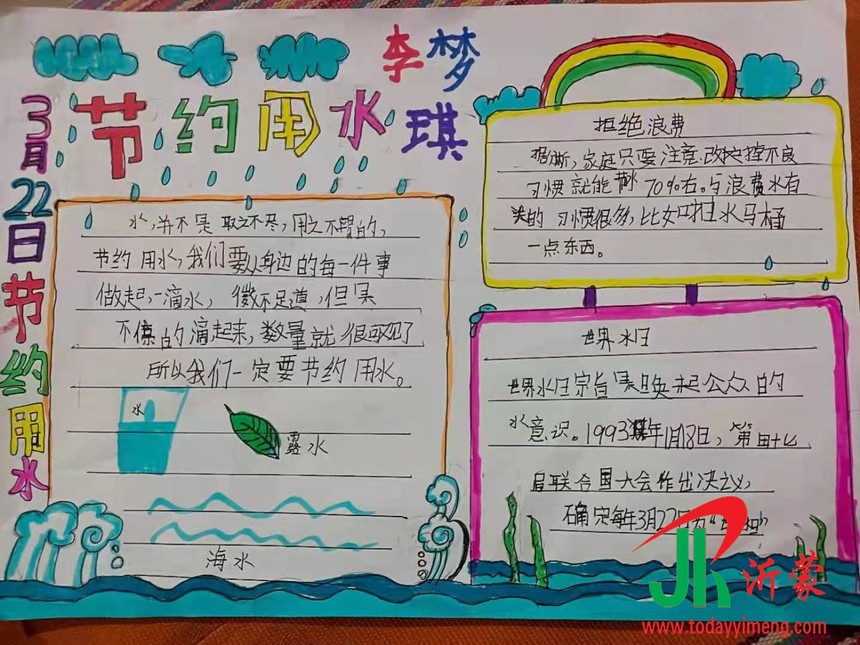 节约用水
李梦琪
3月22日节约用水
水,并不是取之不尽,用之不竭的,
节约用水,我们要从身边的每一件事
做起,一滴水,微不足道,但是
不停的滴起来,数量就很可观了
所以我们一定要节约用水。
水
露水
海水
拒绝浪费
据分析,家庭只要注意改掉不良
习惯就能节水70%右。与浪费水有
关的习惯很多,比如
水马桶
一点东西。
世界水日
世界水日宗旨是唤起公众的
水意识。1993年1月18日,第四十七
届联合国大会作出决议,
确定每年3月22日为“
沂蒙
www.todayyimeng.com